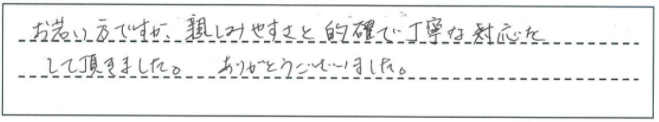 お若い方ですが、親しみやすさと的確で丁寧な対応を
して頂きました。 ありがとうございました。